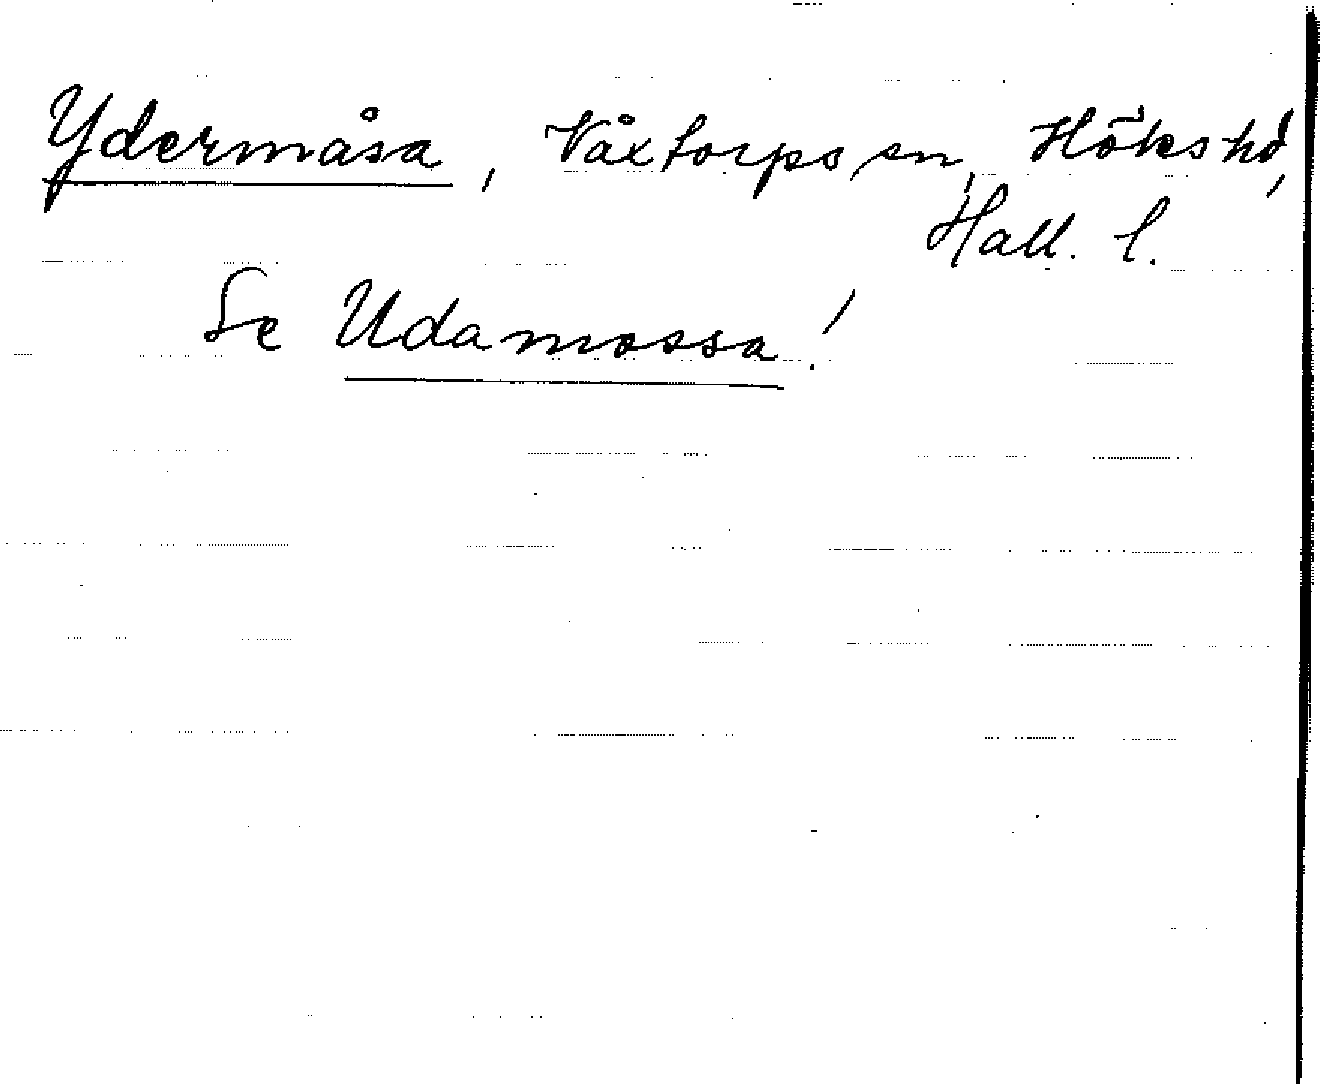 Ydermåsa, Våxtorps sn, Höks hd,
Hall. l.
Se Udamossa!